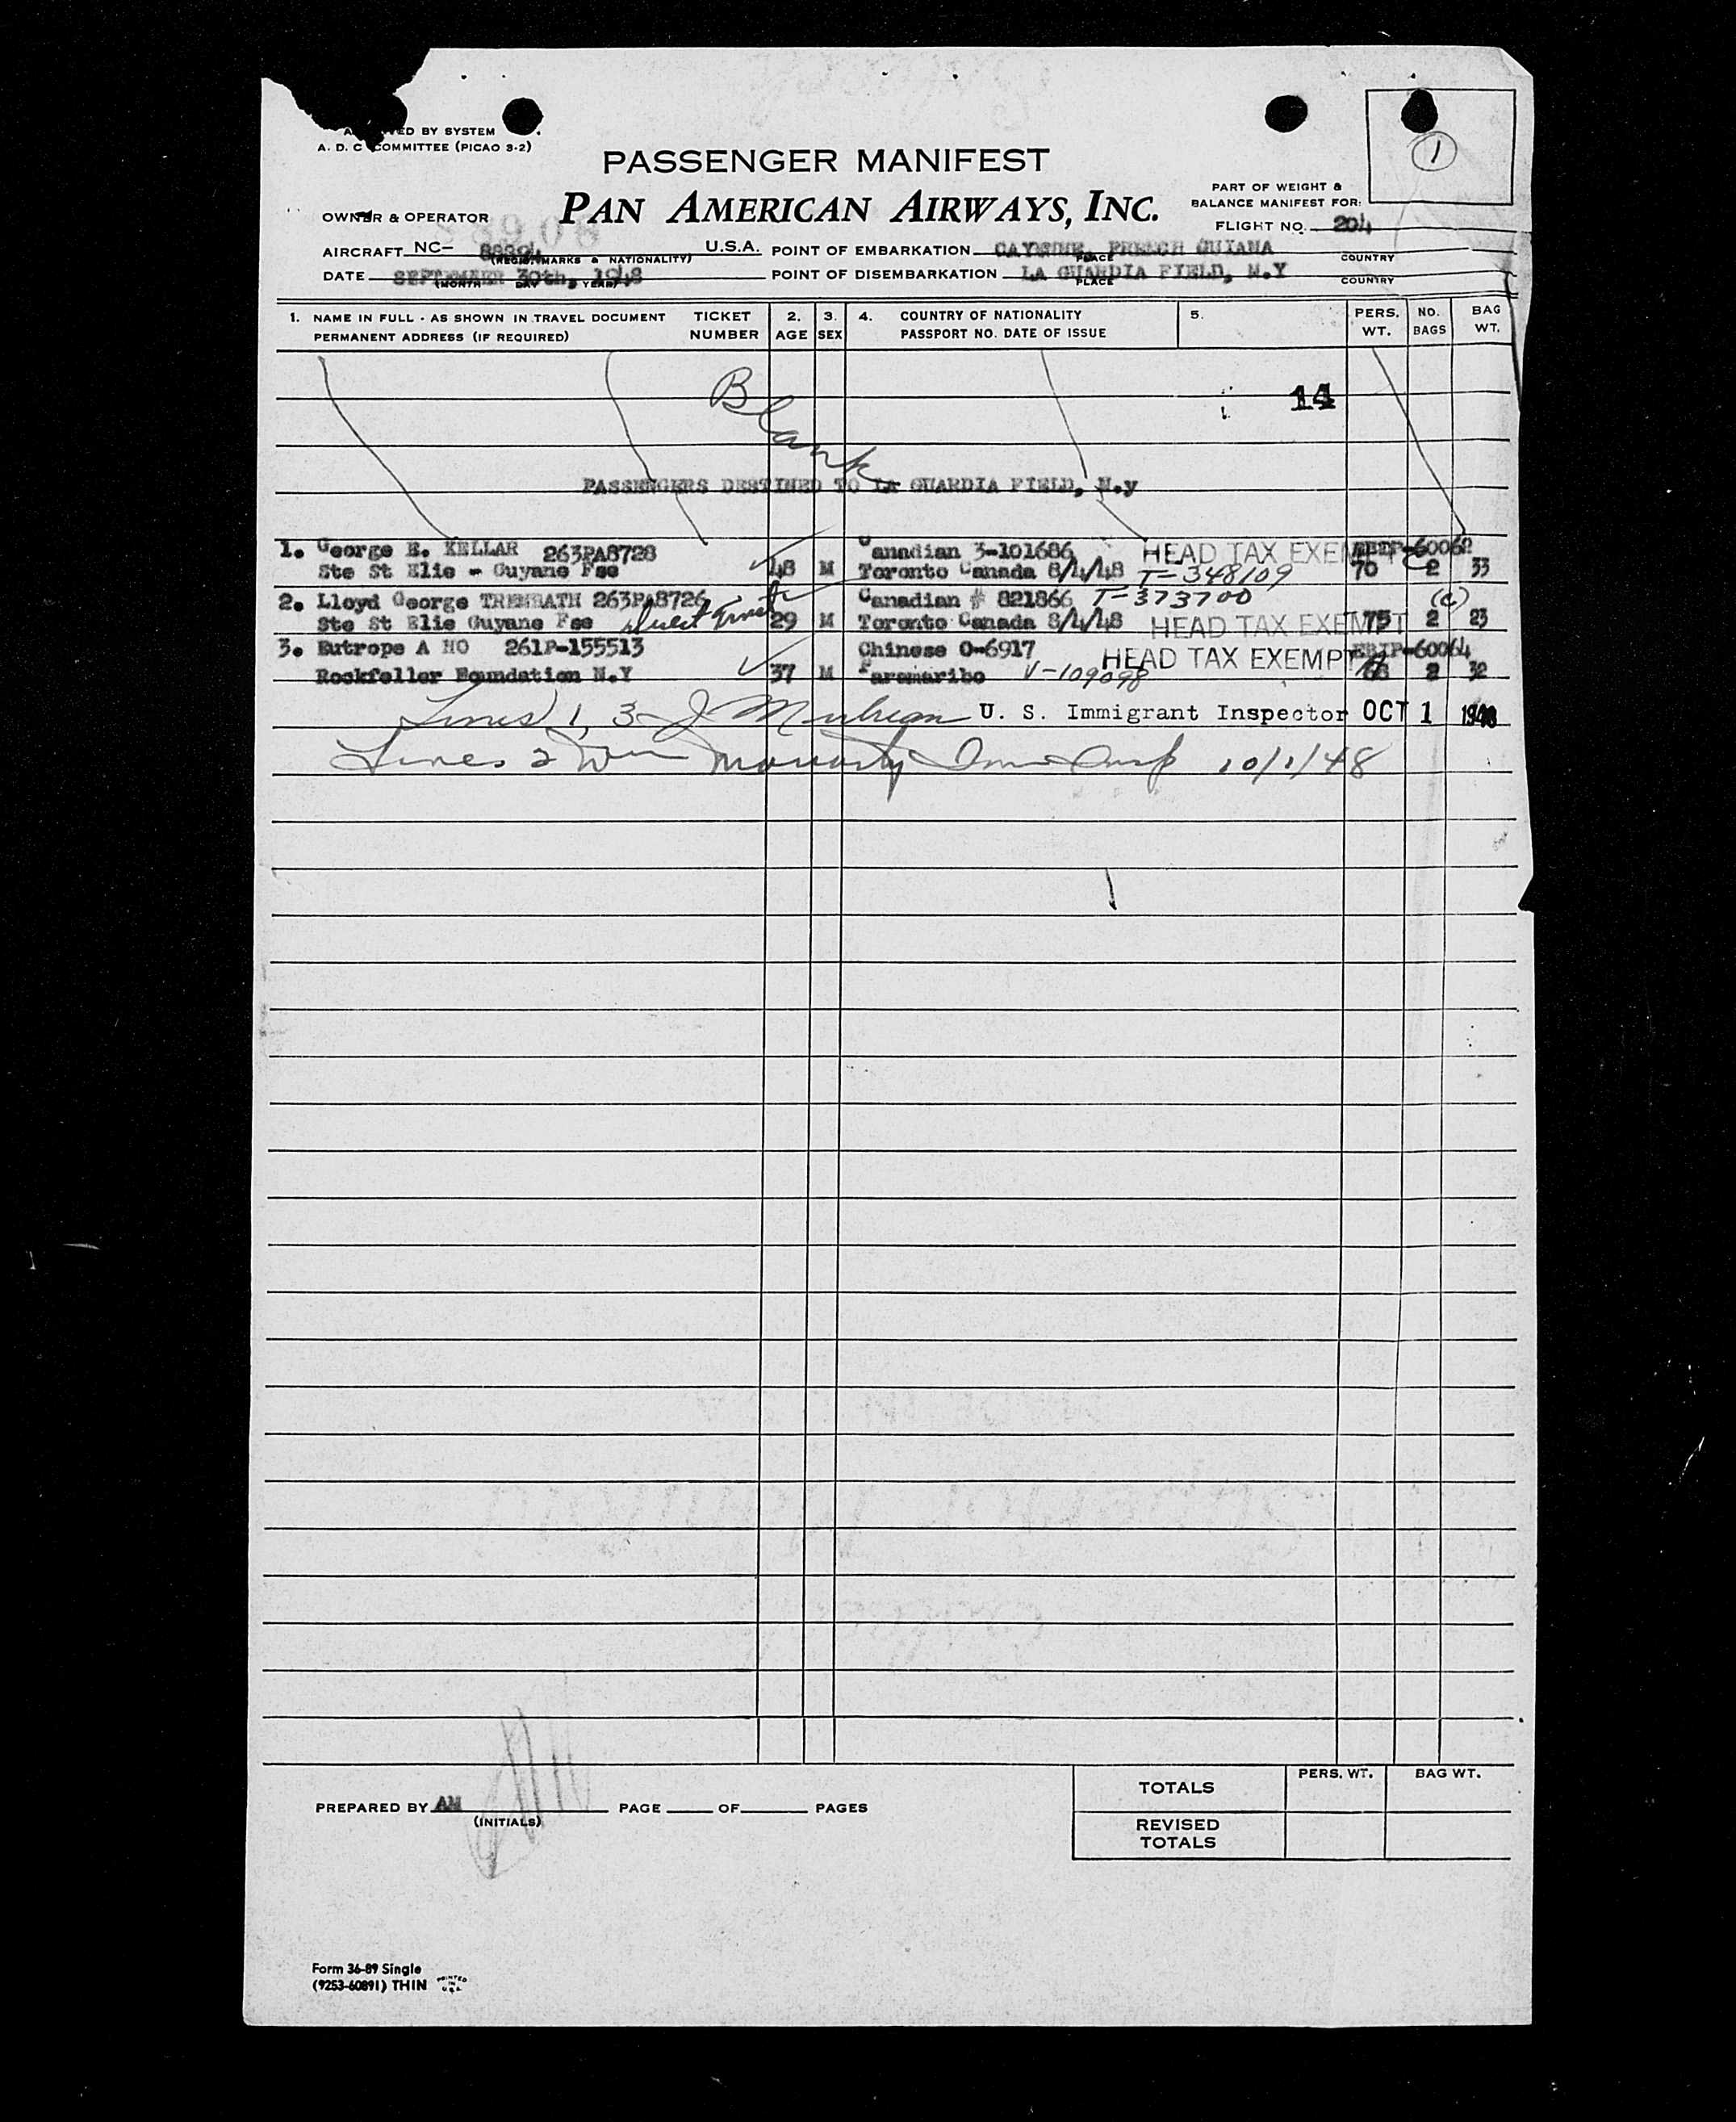 ED BY SYSTEM
A. D. C COMMITTEE (PICAO 3-2)
1
PASSENGER MANIFEST
PAN AMERICAN AIRWAYS, INC.
PART OF WEIGHT &
BALANCE MANIFEST FOR:
FLIGHT NO. 204
OWNER & OPERATOR
AIRCRAFT NC- U.S.A. POINT OF EMBARKATION CAYENNE, FRENCH GUIANA
(REGIST. MARKS & NATIONALITY) PLACE COUNTRY
DATE SEPTEMBER 30th, 1948 POINT OF DISEMBARKATION LA GUARDIA FIELD, N.Y
(MONTH DAY YEAR) PLACE COUNTRY
1. NAME IN FULL - AS SHOWN IN TRAVEL DOCUMENT TICKET 2. 3. 4. COUNTRY OF NATIONALITY 5. PERS. NO. BAG
PERMANENT ADDRESS (IF REQUIRED) NUMBER AGE SEX PASSPORT NO. DATE OF ISSUE WT. BAGS WT.
Blank
14
PASSENGERS DESTINED TO LA GUARDIA FIELD, N.y
1. George E. KELLAR 263PA8728 Canadian 3-101686 HEAD TAX EXEMPT
Ste St Elie - Guyane Fse 48 M Toronto Canada 8/4/48 T-348109 70 2 33
2. Lloyd George TREMBATH 263PA8726 Canadian # 821866 T-373700 (C)
Ste St Elie Guyane Fse Direct Transit 29 M Toronto Canada 8/4/48 HEAD TAX EXEMPT 75 2 23
3. Eutrope A HO 261P-155513 Chinese O-6917 HEAD TAX EXEMPT EBIP-60064
Rockfeller Foundation N.Y 37 M Paramaribo V-109098 2 32
Lines 1, 3 J U. S. Immigrant Inspector OCT 1 1948
Lines 2 Wm Moriarty Imm Insp 10/1/48
PREPARED BY AM PAGE OF PAGES
(INITIALS)
TOTALS PERS. WT. BAG WT.
REVISED
TOTALS
Form 36-89 Single
(9253-60891) THIN PRINTED IN U.S.A.